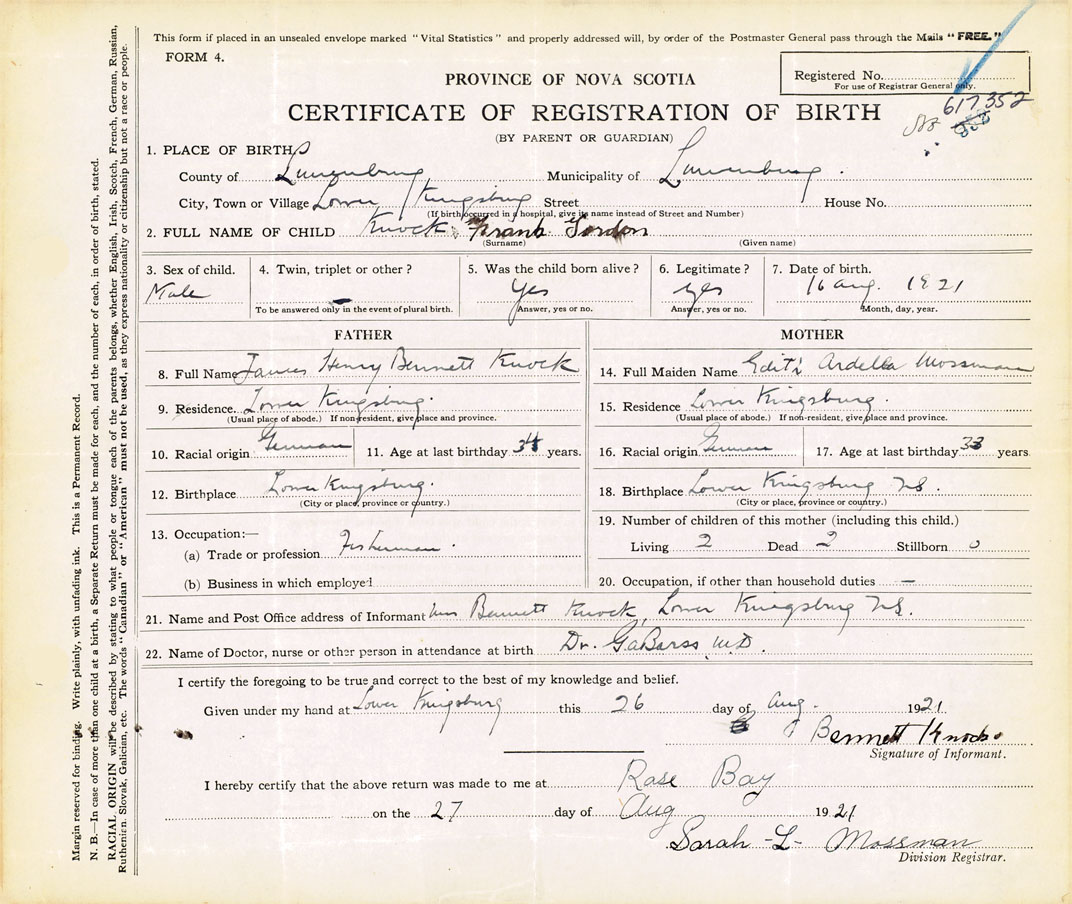 This form if placed in an unsealed envelope marked "Vital Statistics" and properly addressed will, by order of the Postmaster General pass through the Mails "FREE."
FORM 4.
Registered No.
For use of Registrar General only.
617352
PROVINCE OF NOVA SCOTIA
CERTIFICATE OF REGISTRATION OF BIRTH
(BY PARENT OR GUARDIAN)
1. PLACE OF BIRTH
County of Lunenburg Municipality of Lunenburg.
City, Town or Village Lower Kingsburg Street House No.
(If birth occurred in a hospital, give its name instead of Street and Number)
2. FULL NAME OF CHILD Knock Frank Gordon
(Surname) (Given name)
3. Sex of child. 4. Twin, triplet or other? 5. Was the child born alive? 6. Legitimate? 7. Date of birth.
Male – Yes yes 16 Aug. 1921
To be answered only in the event of plural birth. Answer, yes or no. Answer, yes or no. Month, day, year.
FATHER
8. Full Name James Henry Bennett Knock
9. Residence. Lower Kingsburg.
(Usual place of abode.) If non-resident, give place and province.
10. Racial origin German 11. Age at last birthday 34 years.
12. Birthplace Lower Kingsburg.
(City or place, province or country.)
13. Occupation:—
(a) Trade or profession Fisherman.
(b) Business in which employed
MOTHER
14. Full Maiden Name Edith Ardella Mossman
15. Residence Lower Kingsburg.
(Usual place of abode.) If non-resident, give place and province.
16. Racial origin German 17. Age at last birthday 33 years
18. Birthplace Lower Kingsburg NS.
(City or place, province or country.)
19. Number of children of this mother (including this child.)
Living 2 Dead 2 Stillborn 0
20. Occupation, if other than household duties —
21. Name and Post Office address of Informant Mrs Bennett Knock, Lower Kingsburg NS.
22. Name of Doctor, nurse or other person in attendance at birth Dr. GaBarss M.D.
I certify the foregoing to be true and correct to the best of my knowledge and belief.
Given under my hand at Lower Kingsburg this 26 day of Aug. 1921
Bennett Knock.
Signature of Informant.
I hereby certify that the above return was made to me at Rose Bay
on the 27 day of Aug 1921
Sarah L Mossman
Division Registrar.
Margin reserved for binding. Write plainly, with unfading ink. This is a Permanent Record.
N. B.—In case of more than one child at a birth, a Separate Return must be made for each, and the number of each, in order of birth, stated.
RACIAL ORIGIN will be described by stating to what people or tongue each of the parents belongs, whether English, Irish, Scotch, French, German, Russian,
Ruthenian, Slovak, Galician, etc. The words "Canadian" or "American" must not be used, as they express nationality or citizenship but not a race or people.